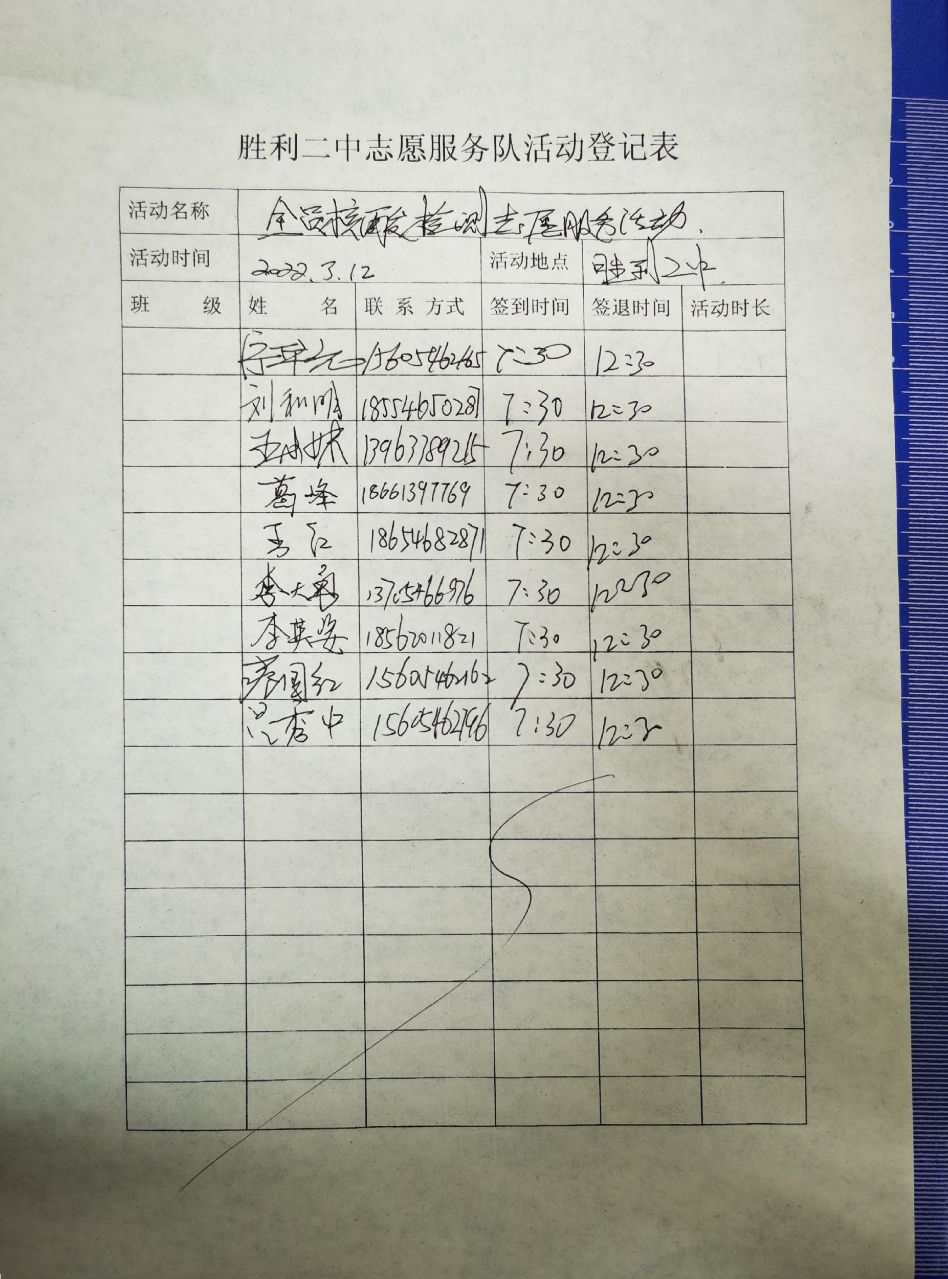 胜利二中志愿服务队活动登记表
活动名称 全员核酸检测志愿服务活动.
活动时间 2022.3.12 活动地点 胜利二中.
班 级 姓 名 联系方式 签到时间 签退时间 活动时长
15605462165 7:30 12:30
刘和明 18554650287 7:30 12:30
王小妹 13963389215 7:30 12:30
葛峰 18661397769 7:30 12:30
王红 18654682871 7:30 12:30
李大勇 13705466976 7:30 12:30
李英姿 18562011821 7:30 12:30
国红 15605462162 7:30 12:30
吕秀中 15605462196 7:30 12:30